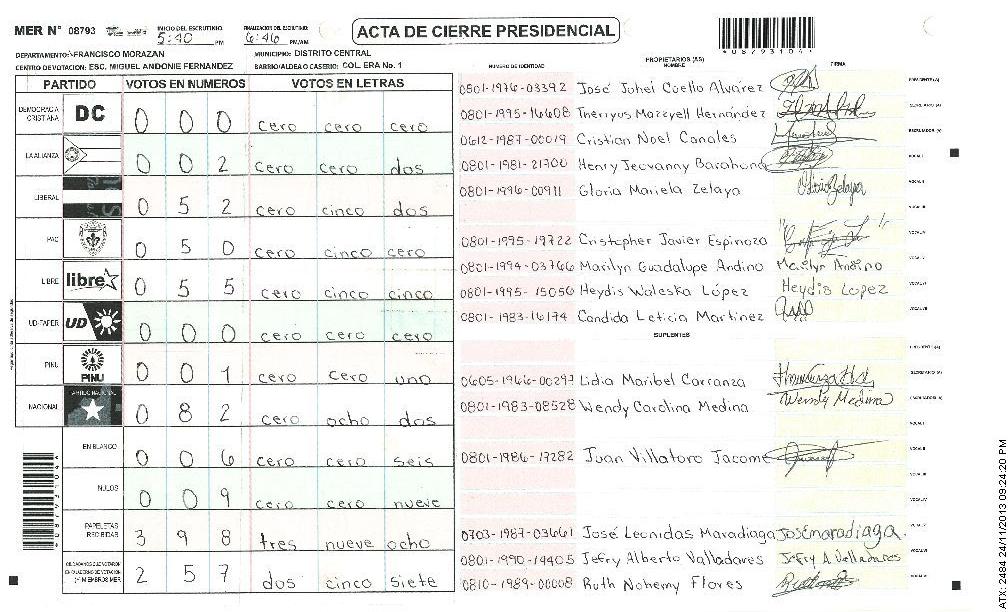 MER N° 08793 INICIO DEL ESCRUTINIO 5:40 PM FINALIZACION DEL ESCRUTINIO 6:46 PM/AM ACTA DE CIERRE PRESIDENCIAL
*08793104*
DEPARTAMENTO: FRANCISCO MORAZAN MUNICIPIO: DISTRITO CENTRAL
CENTRO DE VOTACION: ESC. MIGUEL ANDONIE FERNANDEZ BARRIO/ALDEA O CASERIO: COL. ERA No. 1
PARTIDO VOTOS EN NUMEROS VOTOS EN LETRAS
DEMOCRACIA CRISTIANA DC 0 0 0 cero cero cero
LA ALIANZA 0 0 2 cero cero dos
LIBERAL 0 5 2 cero cinco dos
PAC 0 5 0 cero cinco cero
LIBRE libre 0 5 5 cero cinco cinco
UD-FAPER UD 0 0 0 cero cero cero
PINU PINU 0 0 1 cero cero uno
NACIONAL PARTIDO NACIONAL 0 8 2 cero ocho dos
EN BLANCO 0 0 6 cero cero seis
NULOS 0 0 9 cero cero nueve
PAPELETAS RECIBIDAS 3 9 8 tres nueve ocho
CIUDADANOS QUE VOTARON EN CUADERNO DE VOTACION (+) MIEMBROS MER 2 5 7 dos cinco siete
NUMERO DE IDENTIDAD PROPIETARIOS (AS) NOMBRE FIRMA
0801-1976-03392 José Johel Coello Alvarez PRESIDENTE (A)
0801-1995-16608 Therryus Mazzyell Hernández SECRETARIO (A)
0612-1987-00019 Cristian Noel Canales ESCRUTADOR (A)
0801-1981-21700 Henry Jeovanny Barahona VOCAL I
0801-1996-00911 Gloria Mariela Zelaya VOCAL II
VOCAL III
0801-1995-19722 Cristopher Javier Espinoza VOCAL IV
0801-1994-03766 Marilyn Guadalupe Andino Marilyn Andino VOCAL V
0801-1995-15056 Heydis Waleska López Heydis Lopez VOCAL VI
0801-1983-16174 Candida Leticia Martinez VOCAL VII
SUPLENTES
PRESIDENTE (A)
0605-1966-00297 Lidia Maribel Carranza SECRETARIO (A)
0801-1983-08528 Wendy Carolina Medina Wendy Medina ESCRUTADOR (A)
VOCAL I
0801-1986-17282 Juan Villatoro Jacome VOCAL II
VOCAL III
VOCAL IV
0703-1987-03661 José Leonidas Maradiaga José maradiaga. VOCAL V
0801-1990-14405 Jefry Alberto Valladares Jefry A Valladares VOCAL VI
0810-1989-00008 Ruth Nohemy Flores VOCAL VII
ATX-2484 24/11/2013 09:24:20 PM